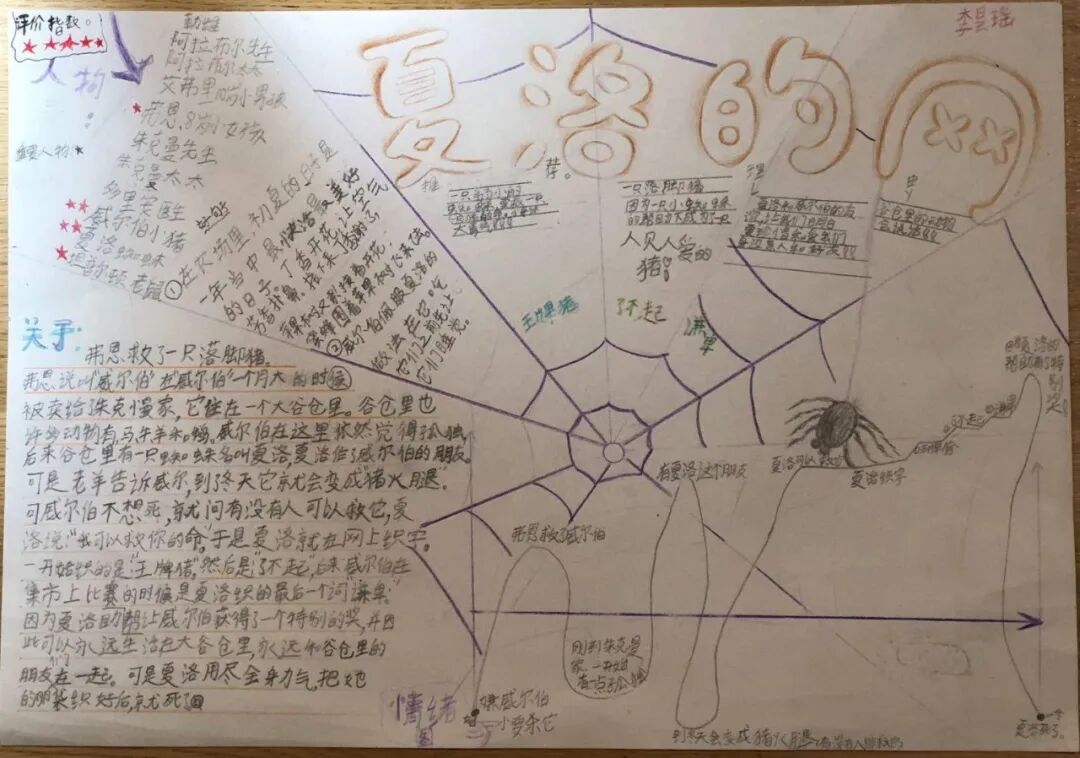 评价指数:
李昙瑶
夏洛的网
人物:
重要人物:
勒维
阿拉布尔先生
阿拉布尔太太
艾弗里10岁小男孩
弗恩,8岁小女孩
朱克曼先生
朱克曼太太
多里安医生
威尔伯小猪
夏洛蜘蛛
坦普尔顿老鼠
好句
①在农场里,初夏的日子是
一年当中最快活最美好
的日子。丁香开花,让空气
芬芳扑鼻,接下来丁香谢了
苹果树又接着开花,
蜜蜂围着苹果树飞来飞去。
②威尔伯佩服夏洛的
做法,在它吃
它们之前先让
它们睡觉。
推荐。
一只落脚猪
因为一只小蜘蛛
的帮助为大成为一只
人见人爱的
猪!
理由
王牌猪
了不起
谦卑
关于:
弗恩救了一只落脚猪。
弗恩说叫"威尔伯"在"威尔伯"一个月大的时候
被卖给了朱克慢家,它住在一个大谷仓里。谷仓里也
许多动物有马牛羊和鹅。威尔伯在这里依然觉得孤独,
后来谷仓里有一只蜘蛛名叫夏洛,夏洛借了威尔伯的朋友,
可是老羊告诉威尔,到了冬天它就会变成"猪火腿"。
可威尔伯不想死,就问有没有人可以救它,夏
洛说:"我可以救你的命。"于是夏洛就在网上织字。
一开始织的是"王牌猪",然后是"了不起",后来威尔伯在
集市上比赛的时候是夏洛织的最后一个词"谦卑"
因为夏洛助帮让威尔伯获得了一个特别的奖,并因
此可以永远生活在大谷仓里,永远和谷仓里的
朋友们在一起。可是夏洛用尽全身力气,把她
的卵袋织好后,就死了。
有夏洛这个朋友
夏洛可以救它
夏洛织字
王牌猪
了不起
谦卑
弗恩救了威尔伯
刚到朱克曼
家,一开始
有一点孤独
情绪图
嫌威尔伯
小要杀它
到冬天会变成猪火腿
夏洛死了。